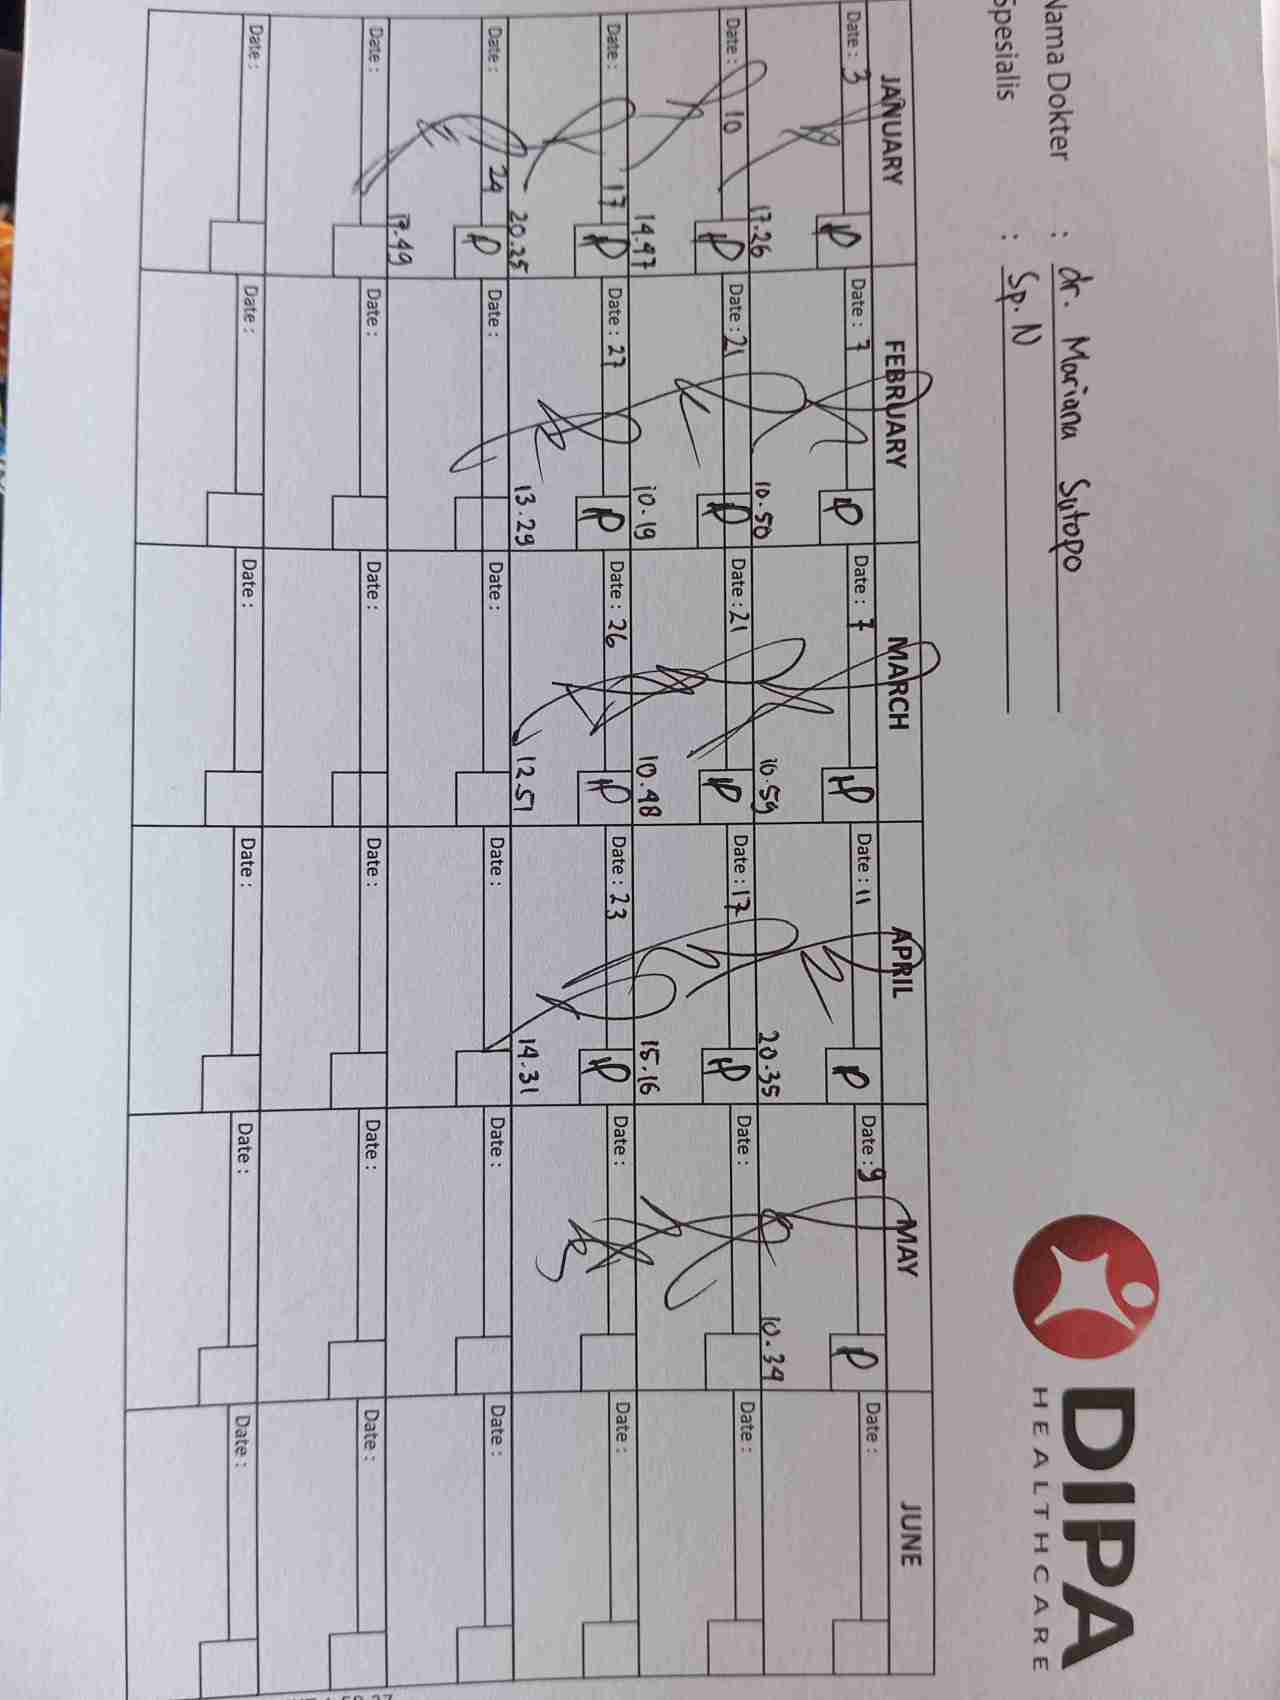 DIPA
HEALTHCARE
Nama Dokter : dr. Mariana Sutopo
Spesialis : Sp. N
JANUARY FEBRUARY MARCH APRIL MAY JUNE
Date : 3 Date : 7 Date : 7 Date : 11 Date : 9 Date :
17.26 10.50 10.59 20.35 10.34
Date : 10 Date : 21 Date : 21 Date : 17 Date : Date :
14.47 10.19 10.48 15.16
Date : 17 Date : 27 Date : 26 Date : 23 Date : Date :
20.25 13.29 12.51 14.31
Date : 24 Date : Date : Date : Date : Date :
17.49
Date : Date : Date : Date : Date : Date :
Date : Date : Date : Date : Date : Date :